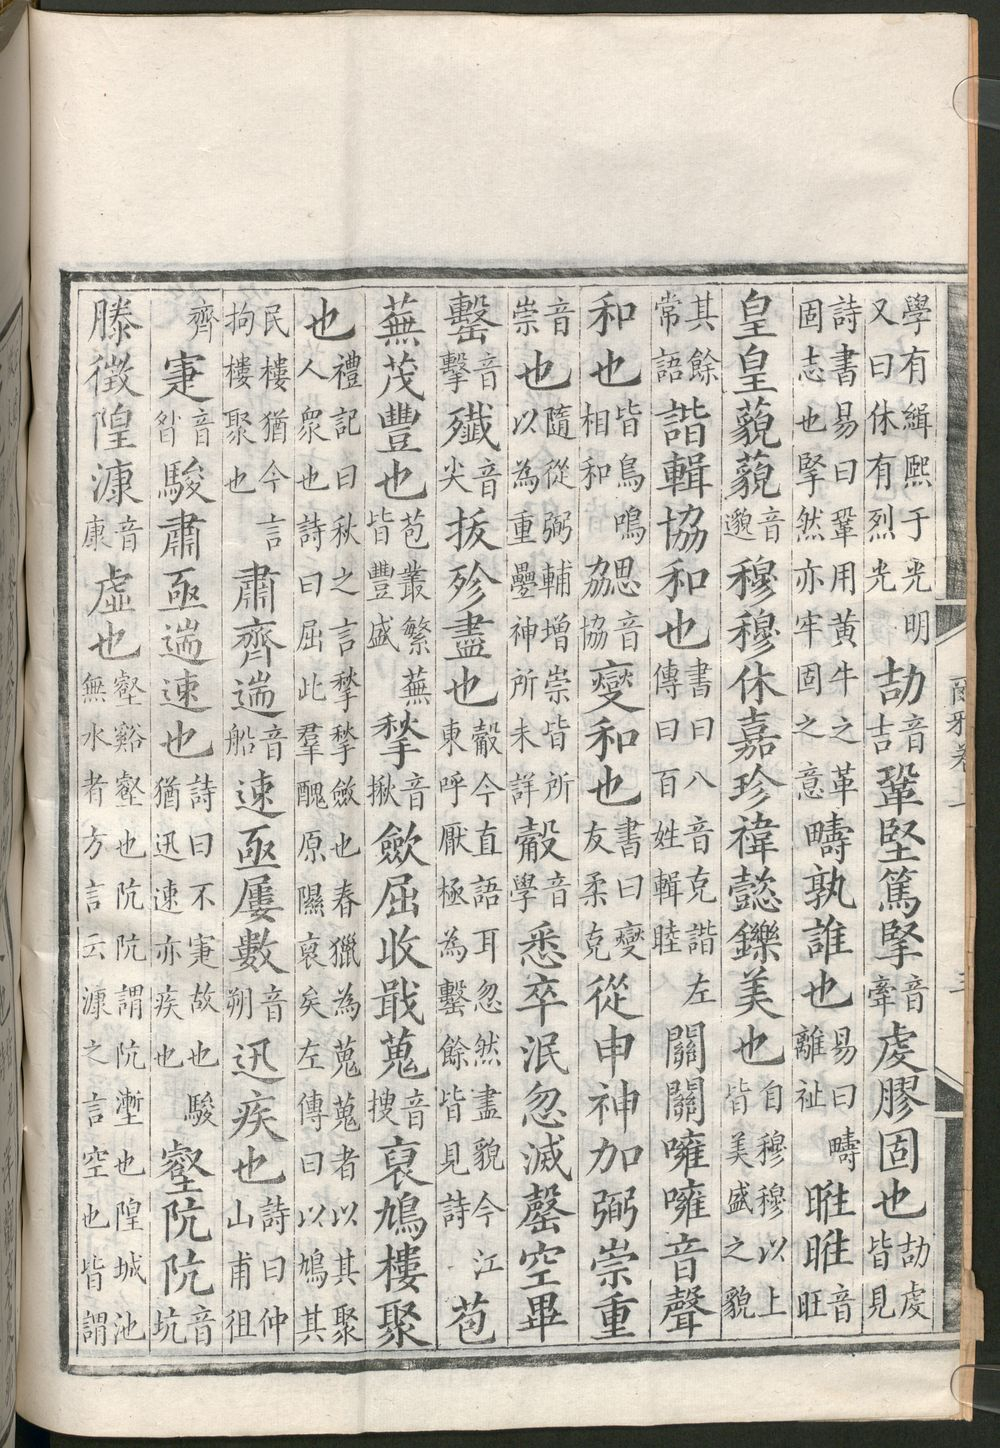 學有緝熙于光明又曰休有烈光劼音吉鞏堅篤掔音牽虔膠固也劼虔皆見
詩書易曰鞏用黃牛之革固志也掔然亦牢固之意疇孰誰也易曰疇離祉暀暀音旺
皇皇藐藐音邈穆穆休嘉珍禕懿鑠美也自穆穆以上皆美盛之貌
其餘常語諧輯協和也書曰八音克諧左傳曰百姓輯睦關關噰噰音聲
和也皆鳥鳴相和勰音協燮和也書曰燮友柔克從申神加弼崇重
音崇也隨從弼輔增崇皆所以為重疊神所未詳觳音學悉卒泯忽滅罄空畢
罊音擊殲音尖拔殄盡也觳今直語耳忽然盡貌今江東呼厭極為罊餘皆見詩苞
蕪茂豐也苞叢繁蕪皆豐盛揫音揪斂屈收戢蒐音搜裒鳩樓聚
也禮記曰秋之言揫揫斂也春獵為蒐蒐者以其聚人衆也詩曰屈此羣醜原隰裒矣左傳曰以鳩其
民樓猶今言拘樓聚也肅齊遄音船速亟屢數音朔迅疾也詩曰仲山甫徂
齊寁音昝駿肅亟遄速也詩曰不寁故也駿猶迅速亦疾也壑阬阬音坑
滕徵隍漮音康虛也壑谿壑也阬阬謂阬壍也隍城池無水者方言云漮之言空也皆謂
爾雅卷一
三